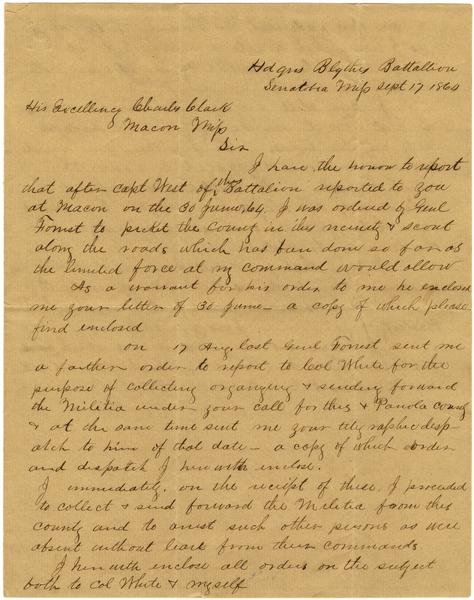 Hdqrs Blythes Battallion
Senatobia Miss Sept 17 1864
His Excellency Charles Clark
Macon Miss
Sir
I have the honor to report
that after Capt West of this Battalion reported to you
at Macon on the 30 June, 64. I was ordered by Genl
Forrest to picket the County in this vicinity & scout
along the roads which has been done so far as
the limited force at my command would allow
As a warrant for his order to me he enclosed
me your letter of 30 June - a copy of which please
find enclosed
on 17 Aug. last Genl Forrest sent me
a farther order to report to Col White for the
purpose of collecting organizing & sending forward
the Militia under your call for this & Panola County
& at the same time sent me your telegraphic disp-
atch to him of that date - a copy of which order
and dispatch I herewith enclose.
I immediately, on the receipt of these, I proceeded
to collect & send forward the Militia from this
county and to arrest such other persons as were
absent without leave from their commands.
I herewith enclose all orders on the subject
both to Col White & myself